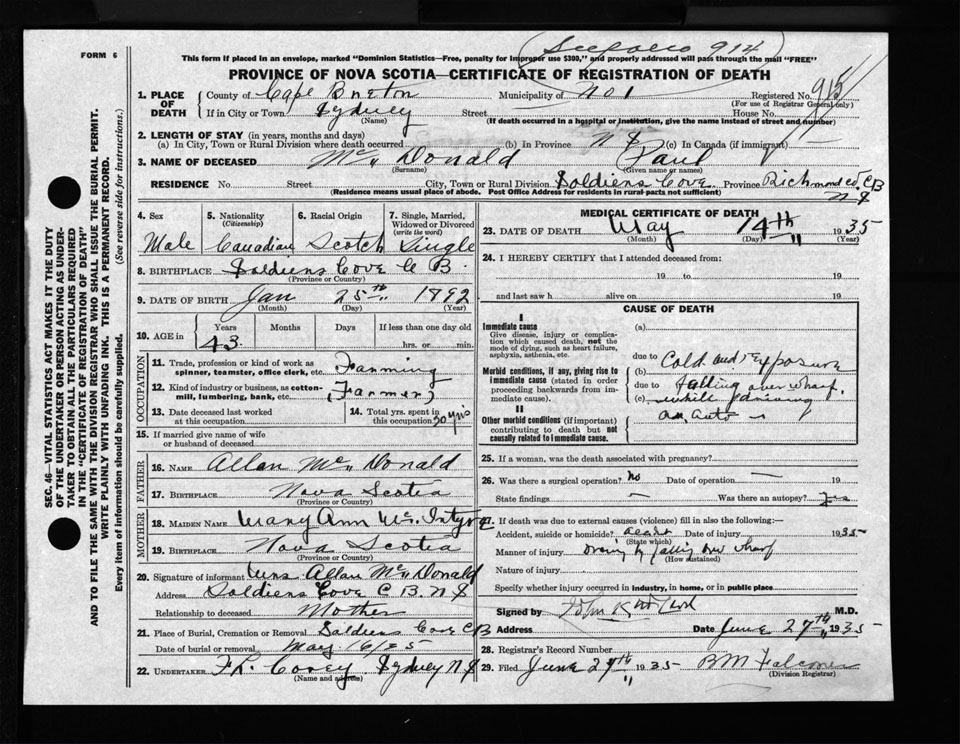 FORM 6
This form if enclosed in an envelope, marked "Dominion Statistics—Free, penalty for improper use $300," and properly addressed will pass through the mail "FREE"
914
PROVINCE OF NOVA SCOTIA—CERTIFICATE OF REGISTRATION OF DEATH
1. PLACE OF DEATH
County of Cape Breton Municipality of No 1 Registered No. 915
(For use of Registrar General only)
If in City or Town Sydney Street House No.
(Name) (If death occurred in a hospital or institution, give the name instead of street and number)
2. LENGTH OF STAY (in years, months and days)
(a) In City, Town or Rural Division where death occurred (b) In Province N S (c) In Canada (if immigrant)
3. NAME OF DECEASED Mc Donald Paul
(Surname) (Given name or names)
RESIDENCE No. Street City, Town or Rural Division Soldiers Cove Province Richmond Co. CB
N S
(Residence means usual place of abode. Post Office Address for residents in rural parts not sufficient)
4. Sex
Male
5. Nationality
(Citizenship)
Canadian
6. Racial Origin
Scotch
7. Single, Married, Widowed or Divorced
(write the word)
Single
8. BIRTHPLACE Soldiers Cove C B
(Province or Country)
9. DATE OF BIRTH Jan 25th 1892
(Month) (Day) (Year)
10. AGE in
Years Months Days If less than one day old
43 hrs. or min.
OCCUPATION
11. Trade, profession or kind of work as spinner, teamster, office clerk, etc. Farming
12. Kind of industry or business, as cotton-mill, lumbering, bank, etc. (Farmer)
13. Date deceased last worked at this occupation
14. Total yrs. spent in this occupation 30 yrs
15. If married give name of wife or husband of deceased
FATHER
16. NAME Allan Mc Donald
17. BIRTHPLACE Nova Scotia
(Province or Country)
MOTHER
18. MAIDEN NAME Mary Ann Mc Intyre
19. BIRTHPLACE Nova Scotia
(Province or Country)
20. Signature of informant Mrs Allan Mc Donald
Address Soldiers Cove C B. N S
Relationship to deceased Mother
21. Place of Burial, Cremation or Removal Soldiers Cove C B
Date of burial or removal May 16/35
22. UNDERTAKER Sydney N S
(Name and address)
MEDICAL CERTIFICATE OF DEATH
23. DATE OF DEATH May 14th 1935
(Month) (Day) (Year)
24. I HEREBY CERTIFY that I attended deceased from:
19 to 19
and last saw h alive on 19
CAUSE OF DEATH
I
Immediate cause
Give disease, injury or complication which caused death, not the mode of dying, such as heart failure, asphyxia, asthenia, etc.
(a)
due to
Morbid conditions, if any, giving rise to immediate cause (stated in order proceeding backwards from immediate cause).
(b) Cold and Exposure
due to falling over wharf
(c) while driving
an auto
II
Other morbid conditions (if important) contributing to death but not causally related to immediate cause.
25. If a woman, was the death associated with pregnancy?
26. Was there a surgical operation? No Date of operation —
State findings — Was there an autopsy? Yes
27. If death was due to external causes (violence) fill in also the following:—
Accident, suicide or homicide? Date of injury 1935
(State which)
Manner of injury falling over wharf
(How sustained)
Nature of injury
Specify whether injury occurred in industry, in home, or in public place
Signed by John M.D.
Address Date June 27th 1935
28. Registrar's Record Number
29. Filed June 27th 1935 B M Falconer
(Division Registrar)
SEC. 46—VITAL STATISTICS ACT MAKES IT THE DUTY
OF THE UNDERTAKER OR PERSON ACTING AS UNDERTAKER TO OBTAIN ALL THE PARTICULARS REQUIRED
IN THE "CERTIFICATE OF REGISTRATION OF DEATH"
AND TO FILE THE SAME WITH THE DIVISION REGISTRAR WHO SHALL ISSUE THE BURIAL PERMIT.
WRITE PLAINLY WITH UNFADING INK. THIS IS A PERMANENT RECORD.
Every item of information should be carefully supplied. (See reverse side for instructions.)